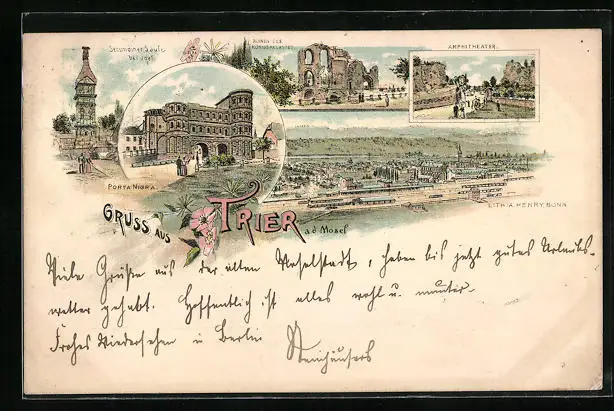 Secundiner Säule
bei Igel.
RUINEN DES
KÖNIGSPALASTES
AMPHITHEATER.
PORTA NIGRA.
LITH. A. HENRY BONN
GRUSS AUS
TRIER
a d Mosel
Viele Grüße aus der alten Moselstadt, haben bis jetzt gutes Urlaubs-
wetter gehabt. Hoffentlich ist alles wohl u. munter.
Frohes Wiedersehen in Berlin
Steinhäusers